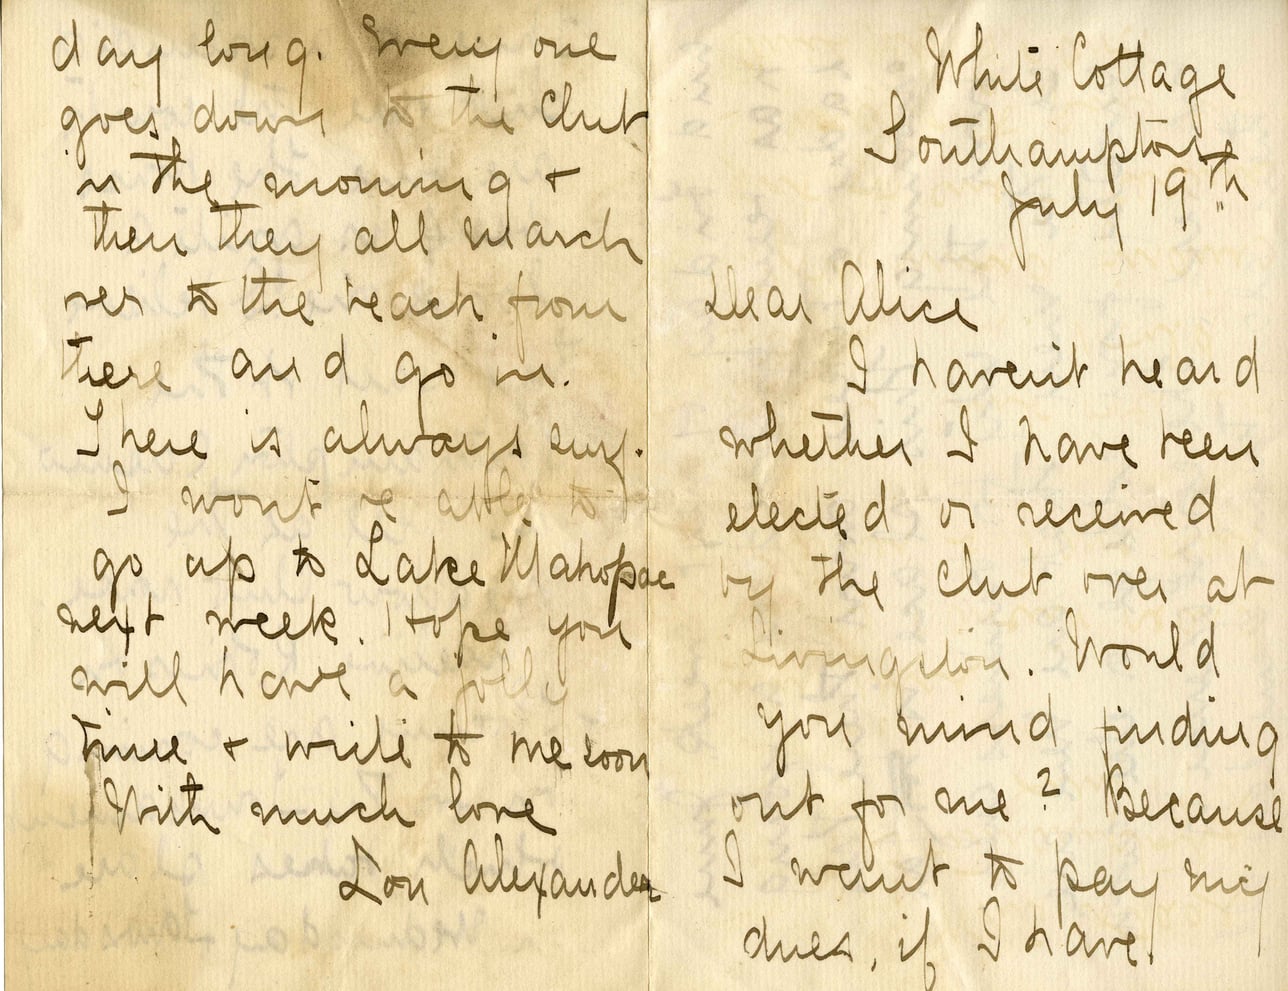 White Cottage
Southampton
July 19th
Dear Alice
I haven't heard
whether I have been
elected or received
by the Club over at
Livingston. Would
you mind finding
out for me? Because
I want to pay my
dues, if I have.
day long. Every one
goes down to the Club
in the morning &
then they all march
over to the beach from
there and go in.
There is always surf.
I won't be able to
go up to Lake Mahopac
next week. Hope you
will have a jolly
time & write to me soon
With much love
Lou Alexander